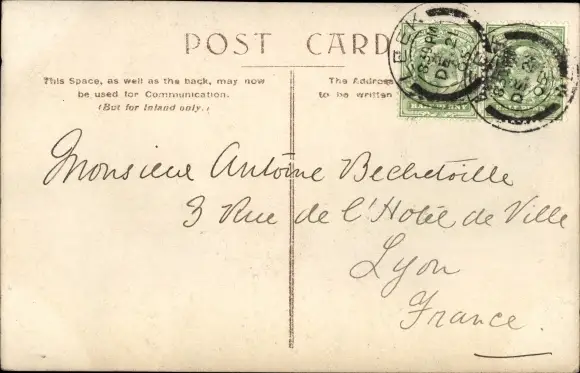 POST CARD
This Space, as well as the back, may now
be used for Communication.
(But for Inland only.)
The Address
to be written
LEEK
8.30 PM
DE 21
05
HALFPENNY
Monsieur Antoine Bechetoille
3 Rue de l'Hotel de Ville
Lyon
France.